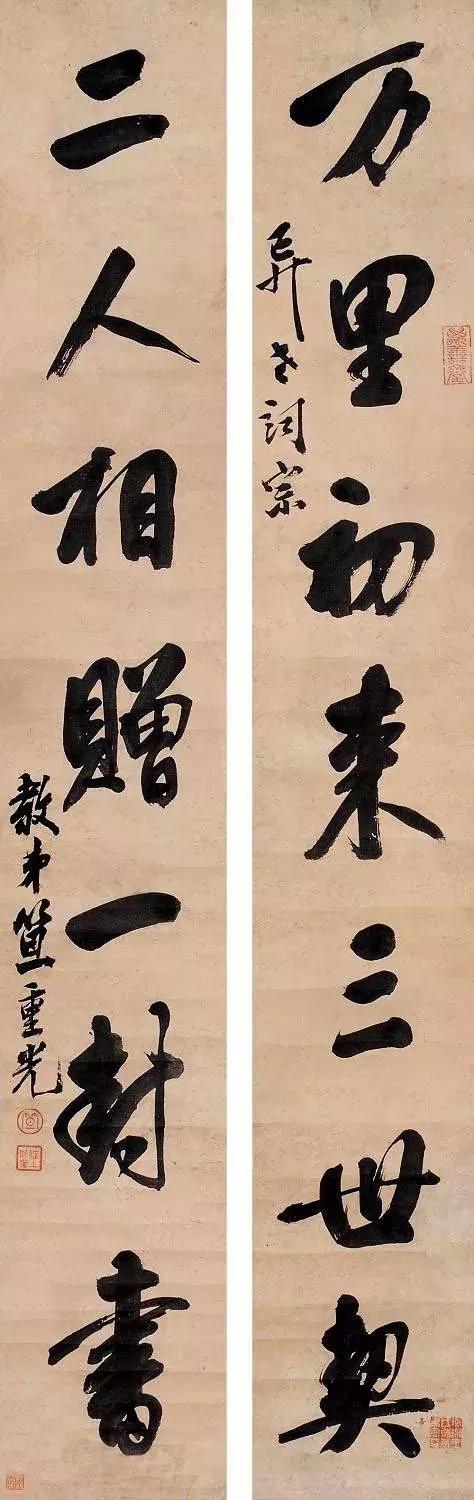 万里初来三世契
异老詞宗
二人相贈一封書
教弟笪重光